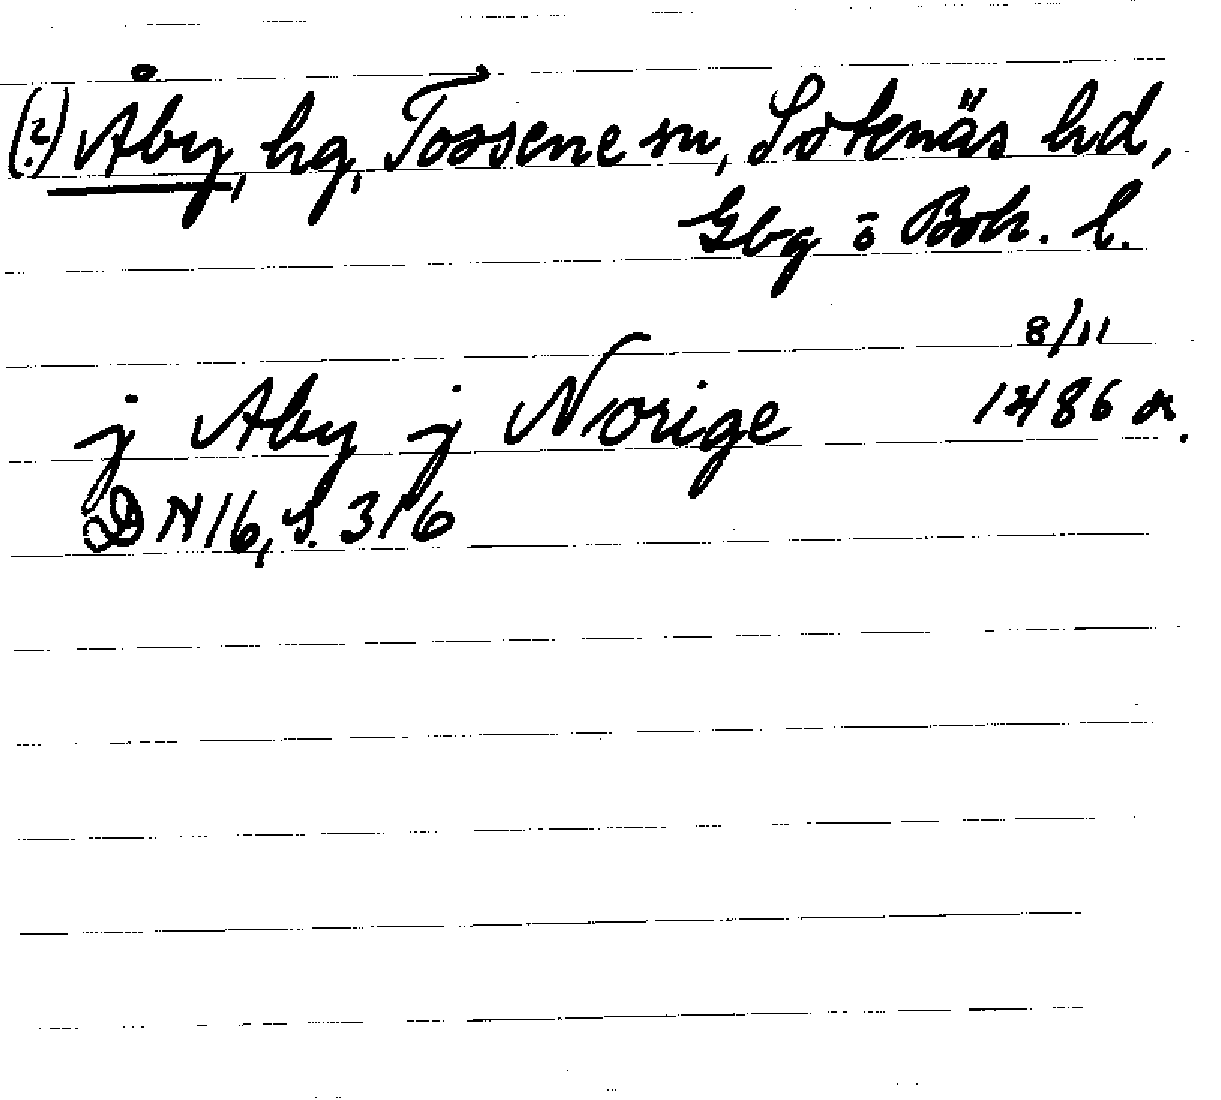 (?) Åby, hg, Tossene sn, Sotenäs hd,
Gbg o Boh. l.
8/11
j Aby j Norige 1486 or.
DN 16, s. 316